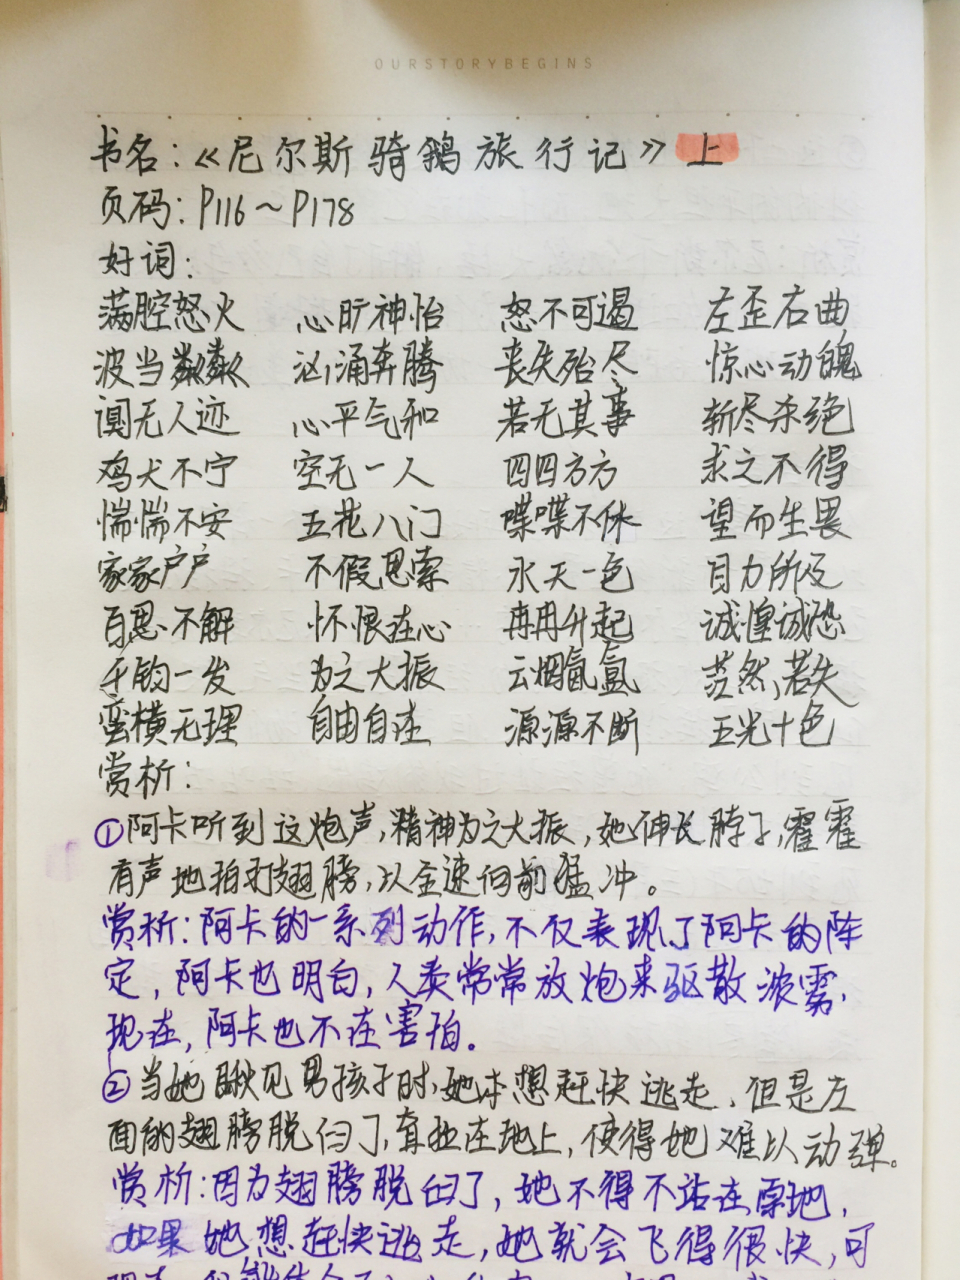 OURSTORYBEGINS
书名:《尼尔斯骑鹅旅行记》上
页码:P116~P178
好词:
满腔怒火 心旷神怡 怒不可遏 左歪右曲
波当粼粼 汹涌奔腾 丧失殆尽 惊心动魄
阒无人迹 心平气和 若无其事 斩尽杀绝
鸡犬不宁 空无一人 四四方方 求之不得
惴惴不安 五花八门 喋喋不休 望而生畏
家家户户 不假思索 水天一色 目力所及
百思不解 怀恨在心 冉冉升起 诚惶诚恐
千钧一发 为之大振 云烟氤氲 茫然若失
蛮横无理 自由自在 源源不断 五光十色
赏析:
①阿卡听到这炮声,精神为之大振,她伸长脖子,霍霍
有声地拍打翅膀,以全速向前猛冲。
赏析:阿卡的一系列动作,不仅表现了阿卡的阵
定,阿卡也明白,人类常常放炮来驱散浓雾,
现在,阿卡也不在害怕。
②当她瞅见男孩子时,她本想赶快逃走,但是左
面的翅膀脱臼了,耷拉在地上,使得她难以动弹。
赏析:因为翅膀脱臼了,她不得不站在原地,
如果她想赶快逃走,她就会飞得很快,可